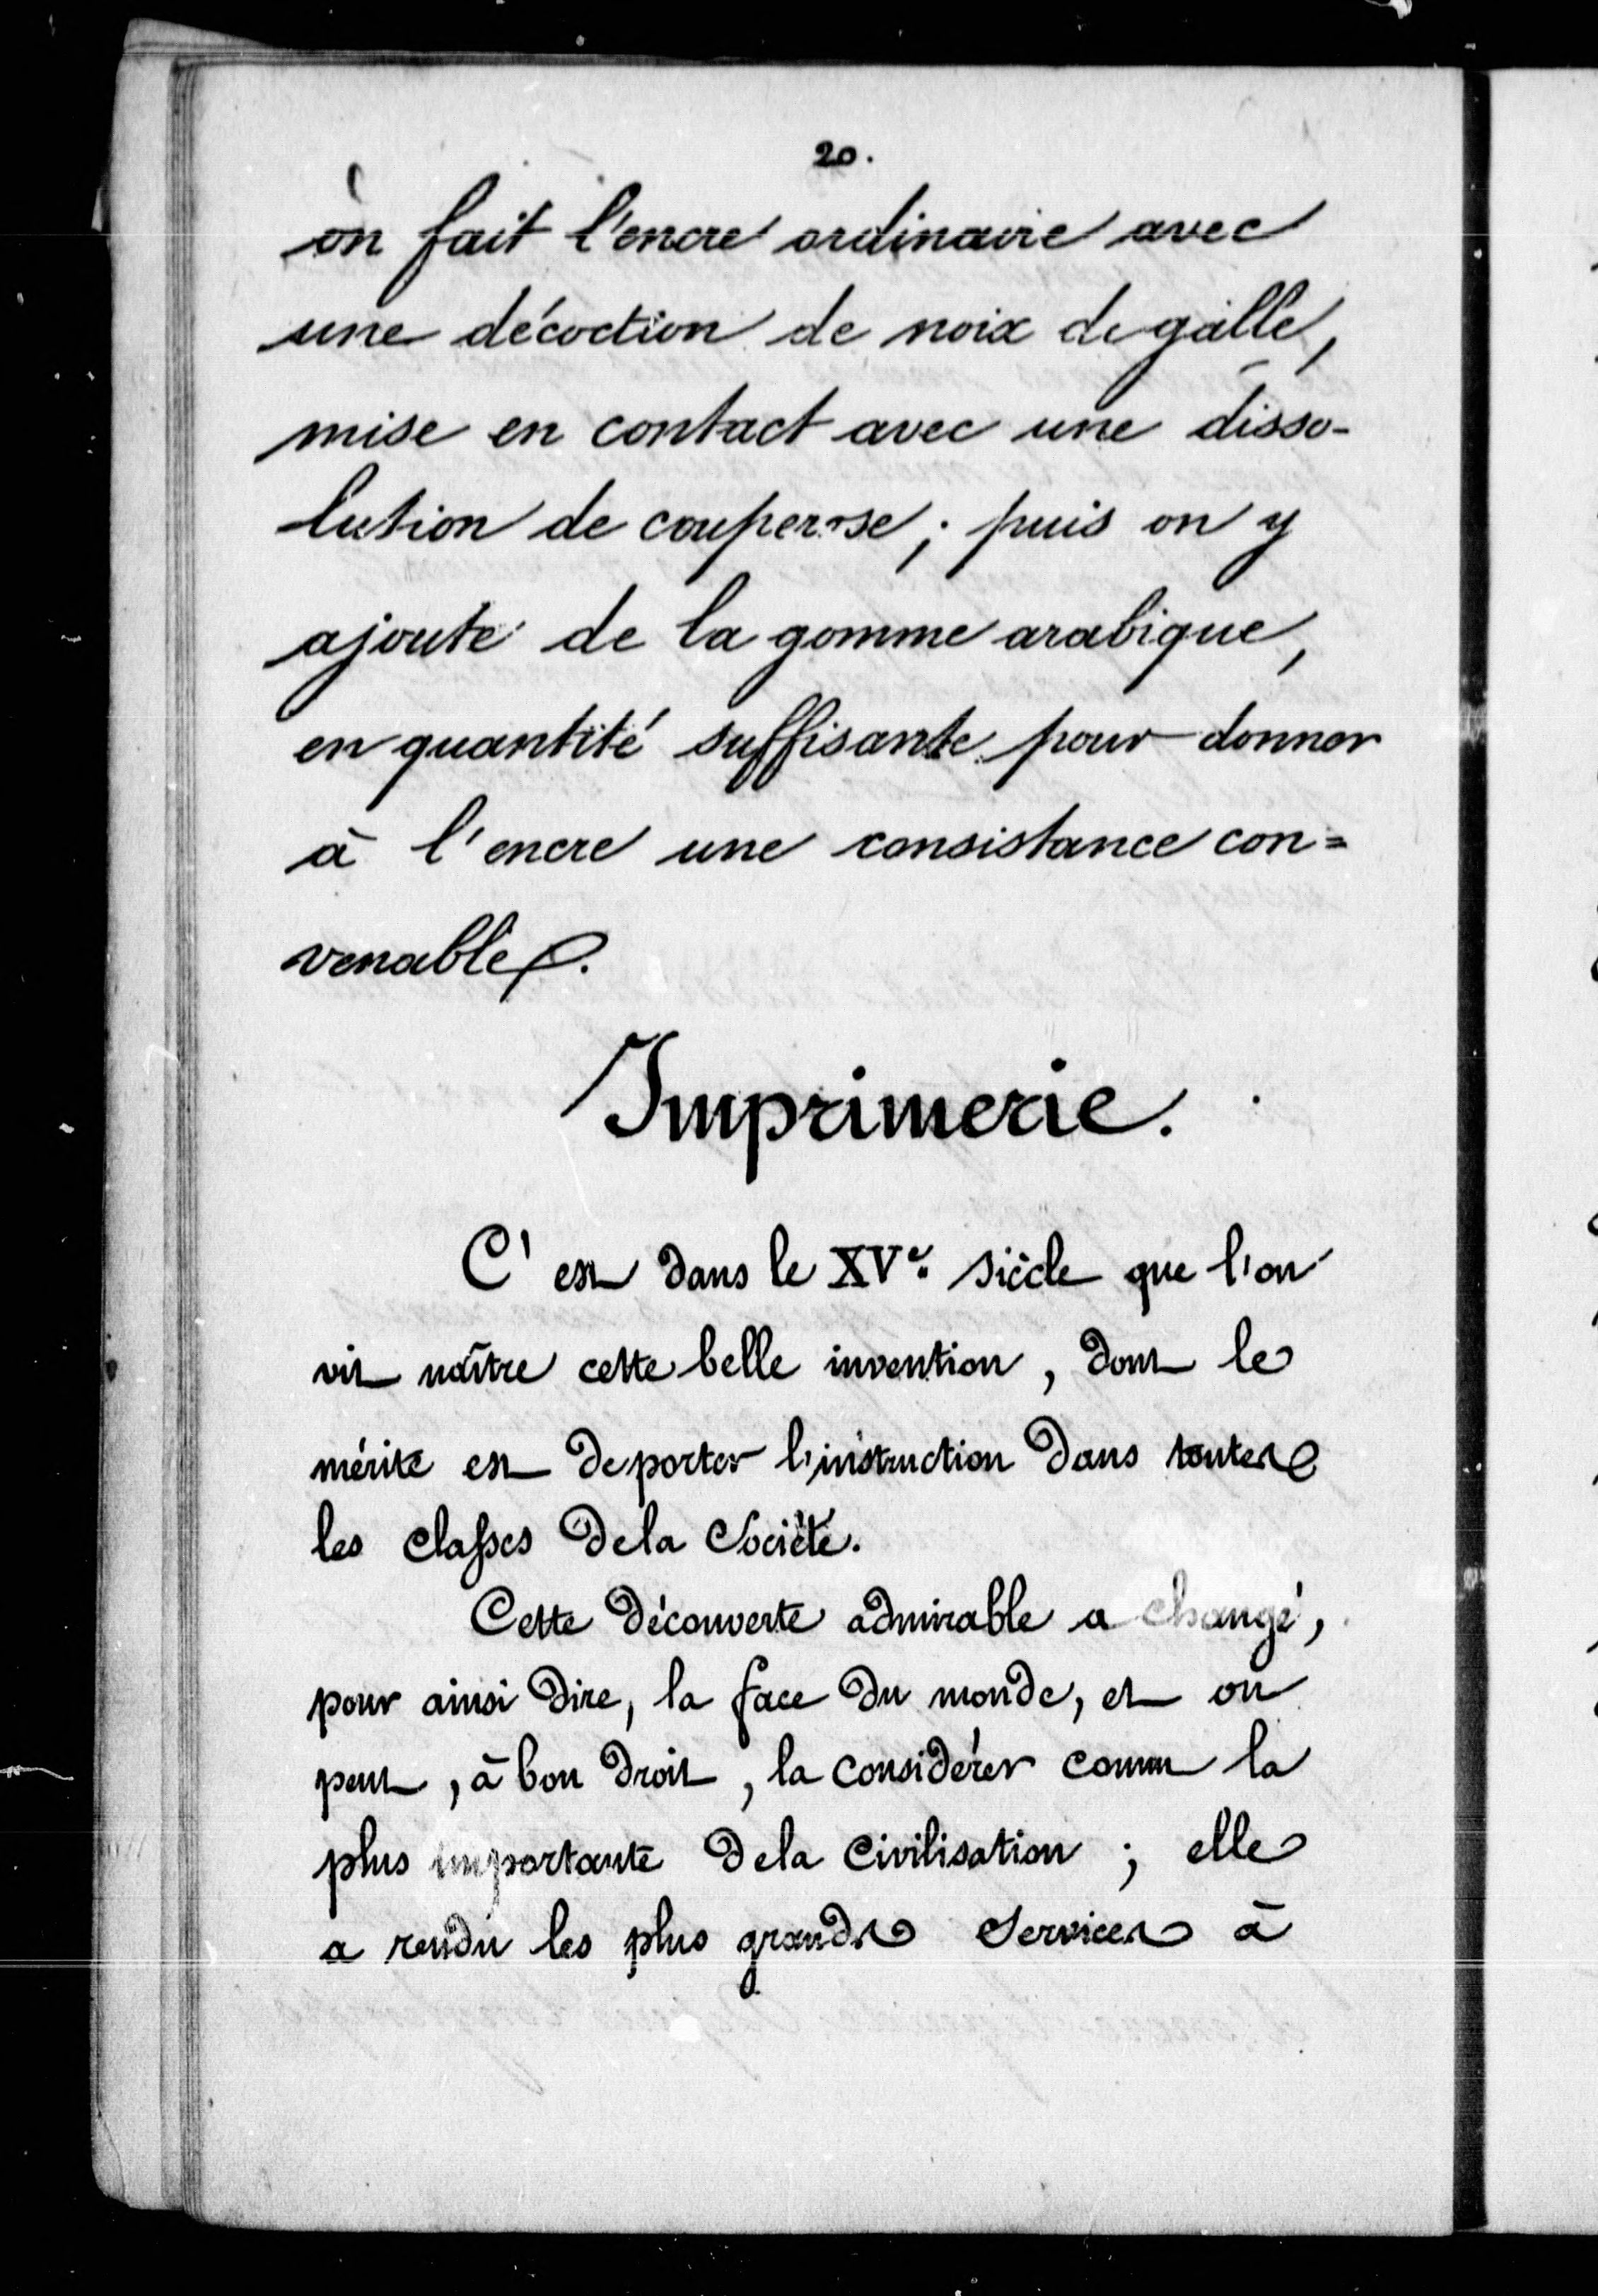 20.
on fait l'encre ordinaire avec
une décoction de noix de galle,
mise en contact avec une disso-
lution de couperose; puis on y
ajoute de la gomme arabique,
en quantité suffisante pour donner
à l'encre une consistance con=
venable.
Imprimerie.
C'est dans le XVe. siècle que l'on
vit naître cette belle invention, dont le
mérite est de porter l'instruction dans toutes
les classes de la Société.
Cette découverte admirable a changé,
pour ainsi dire, la face du monde, et on
peut, à bon droit, la considérer comme la
plus importante de la civilisation; elle
a rendu les plus grands services à